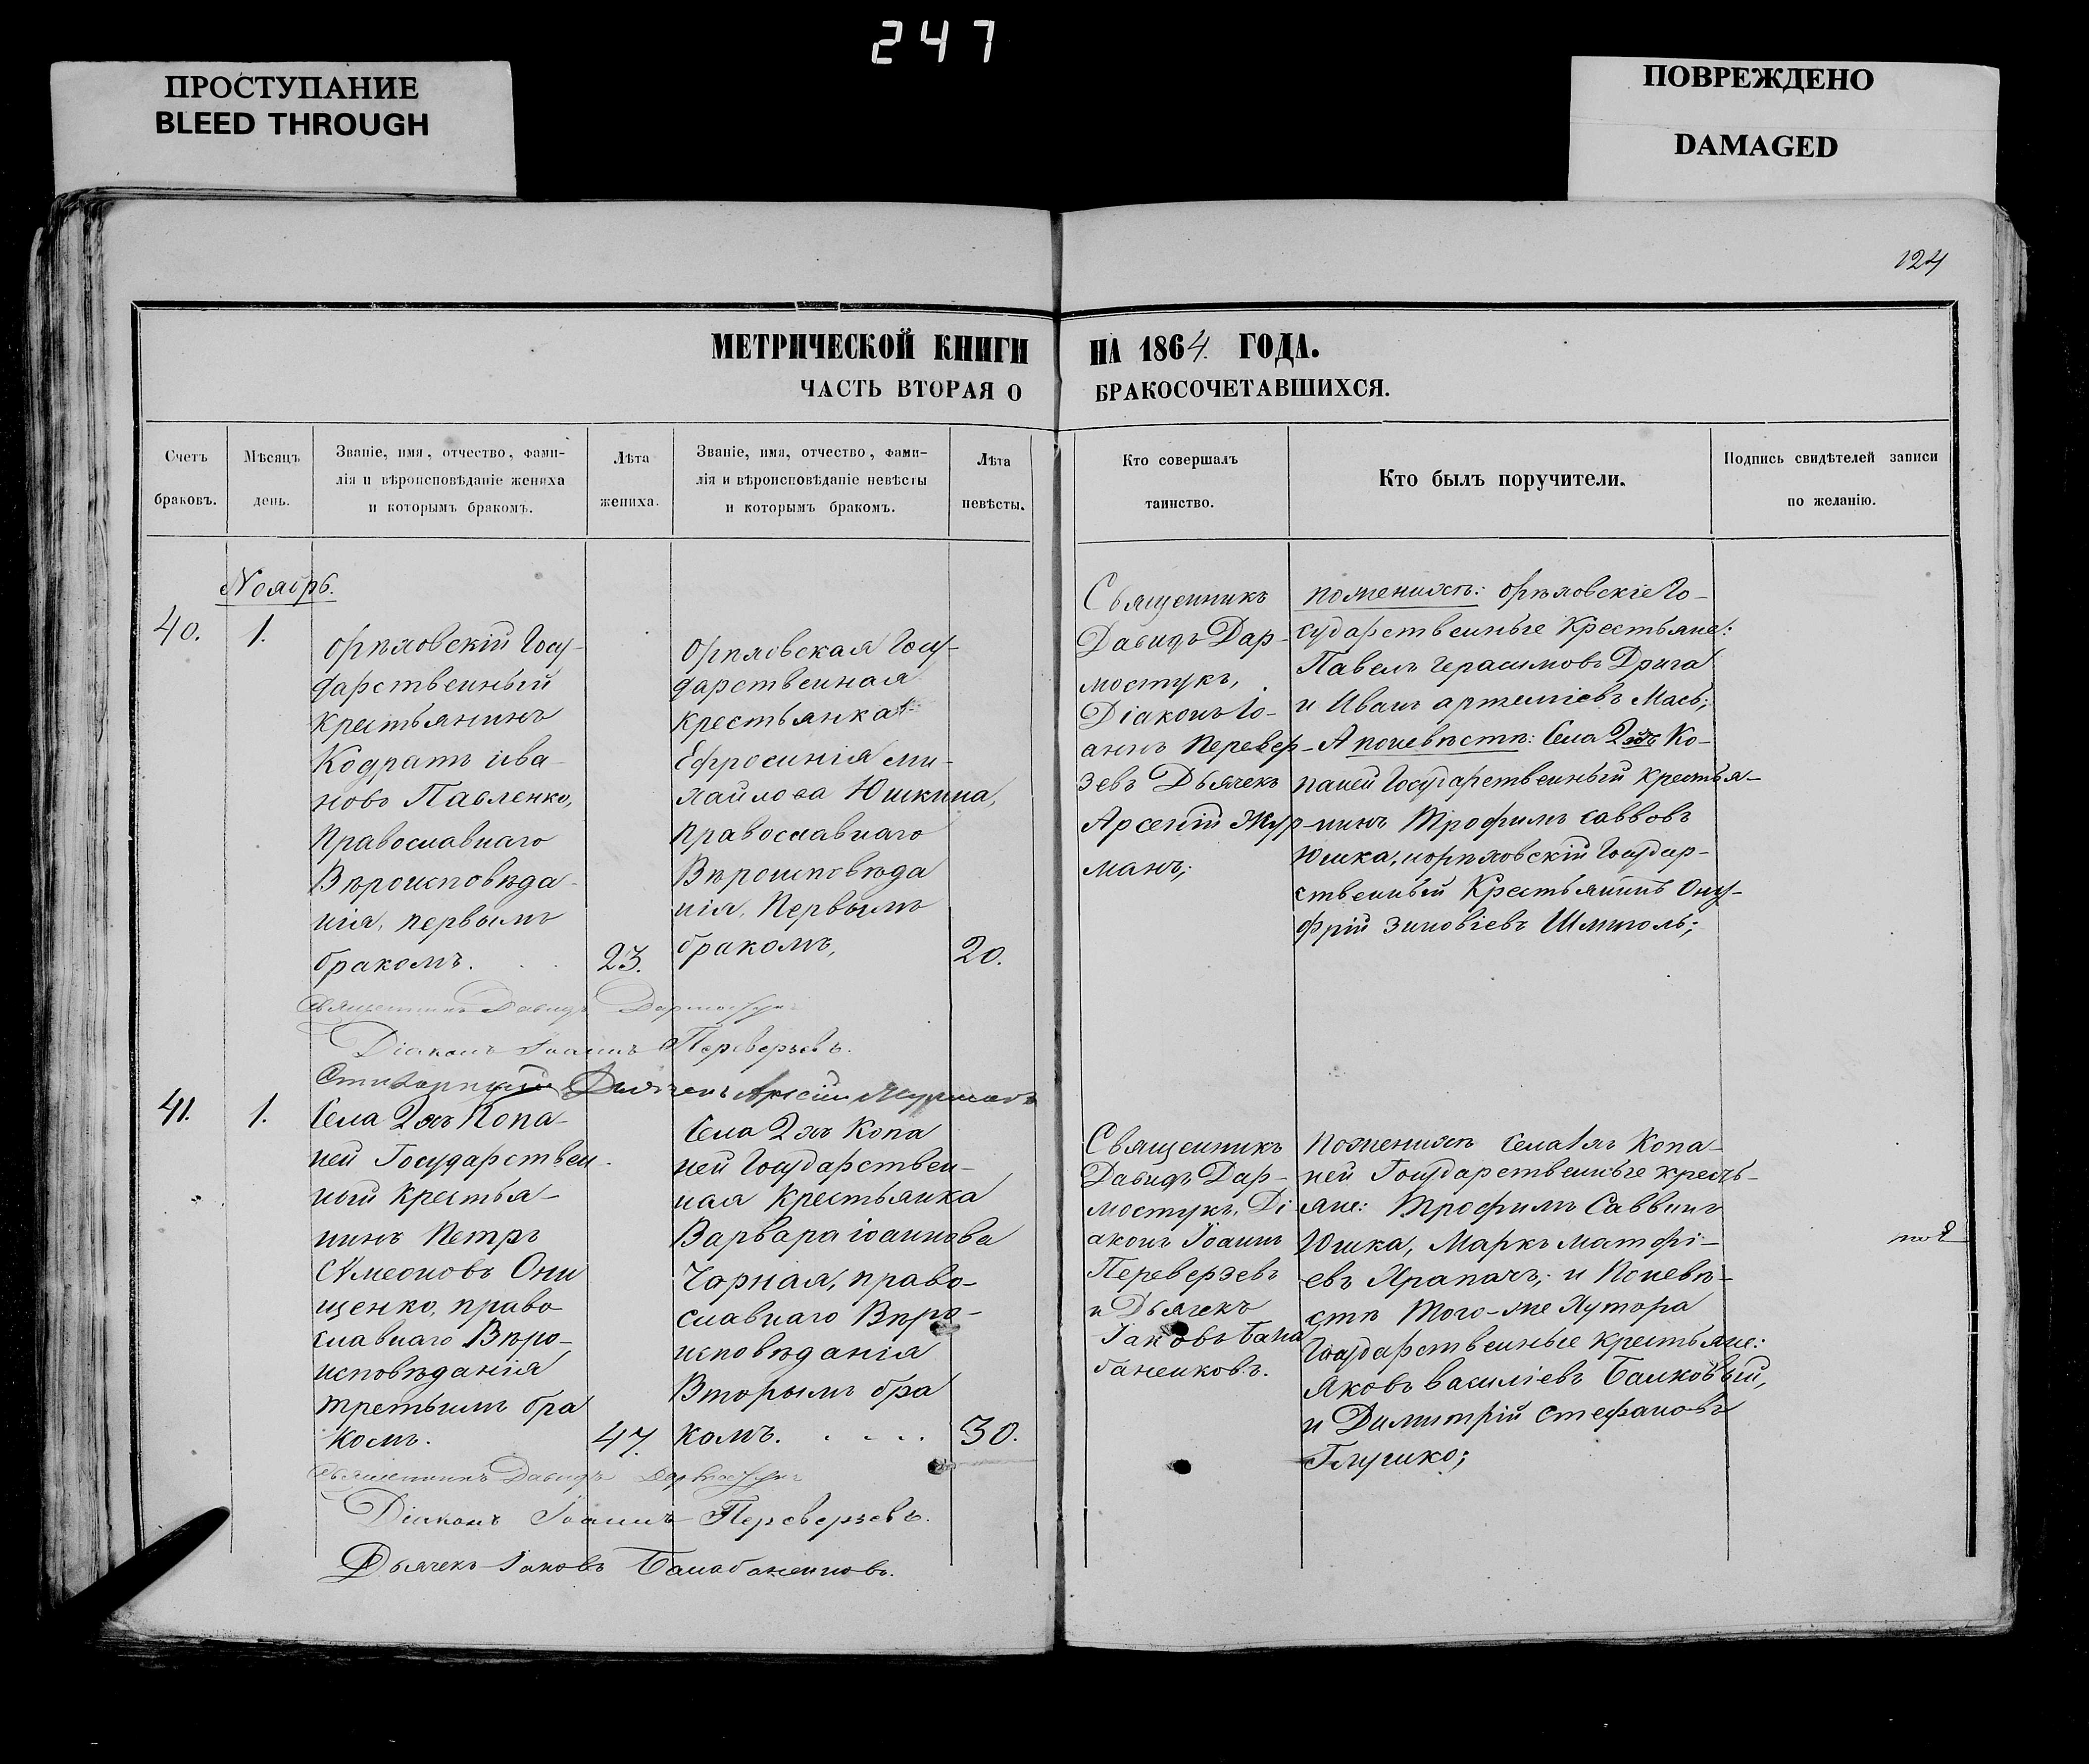 247
ПРОСТУПАНИЕ
BLEED THROUGH
ПОВРЕЖДЕНО
DAMAGED
124
МЕТРИЧЕСКОЙ КНИГИ НА 1864. ГОДА.
ЧАСТЬ ВТОРАЯ О БРАКОСОЧЕТАВШИХСЯ.
Счетъ
браковъ.
Мѣсяцъ
день.
Званіе, имя, отчество, фами-
лія и вѣроисповѣданіе жениха
и которымъ бракомъ.
Лѣта
жениха.
Званіе, имя, отчество, фами-
лія и вѣроисповѣданіе невѣсты
и которымъ бракомъ.
Лѣта
невѣсты.
Кто совершалъ
таинство.
Кто былъ поручители.
Подпись свидѣтелей записи
по желанію.
Ноябрь.
40.
1.
Орѣховскій Госу-
дарственный
Крестьянинъ
Кодратъ ива-
новъ Павленко,
Православнаго
Вѣроисповѣда-
нія, первымъ
бракомъ.
23.
Орѣховская Госу-
дарственная
крестьянка
Ефросинія ми-
хайлова Юшкина,
православнаго
Вѣроисповѣда
нія, Первымъ
бракомъ,
20.
Священникъ
Давидъ Дар-
мостукъ,
Діаконъ Іо-
аннъ Перевер-
зевъ Дьячекъ
Арсеній Жур-
манъ;
пожениха: Орѣховскіе Го-
сударственные Крестьяне:
Павелъ Герасимовъ Дрига
и Иванъ артеміевъ Мась;
А поневѣстѣ: Села 2хъ Ко-
паней Государственный крестья-
нинъ Трофимъ саввовъ
Юшка, иорѣховскій Государ-
ственный Крестьянинъ Ону-
фрій зиновіевъ
Священникъ Давидъ Дармостукъ
Діаконъ Іоаннъ Переверзевъ.
Дьячекъ Арсеній Журманъ
41.
1.
Села 2хъ Копа-
ней Государствен-
ный крестья-
нинъ Петръ
Сѵмеоновъ Они
щенко, право
славнаго Вѣро-
исповѣданія
третьимъ бра
комъ.
47.
Села 2хъ Копа
ней Государствен-
ная Крестьянка
Варвара іоаннова
Чорная, право-
славнаго Вѣро-
исповѣданія
Вторымъ бра
комъ.
30.
Священникъ
Давидъ Дар-
мостукъ, Ді
аконъ Іоаннъ
Переверзевъ
и Дьячекъ
Іаковъ Бала
баненковъ.
Пожениха села 2хъ Копа-
ней Государственные кресть-
яне: Трофимъ Саввинъ
Юшка, Маркъ матфі-
евъ Храпачъ; и Поневѣ-
стѣ того-же Хутора
Государственные крестьяне:
Яковъ василіевъ Балковый,
и Димитрій стефановъ
Глушко;
Священникъ Давидъ Дармостукъ
Діаконъ Іоаннъ Переверзевъ.
Дьячекъ Іаковъ Балабаненковъ.